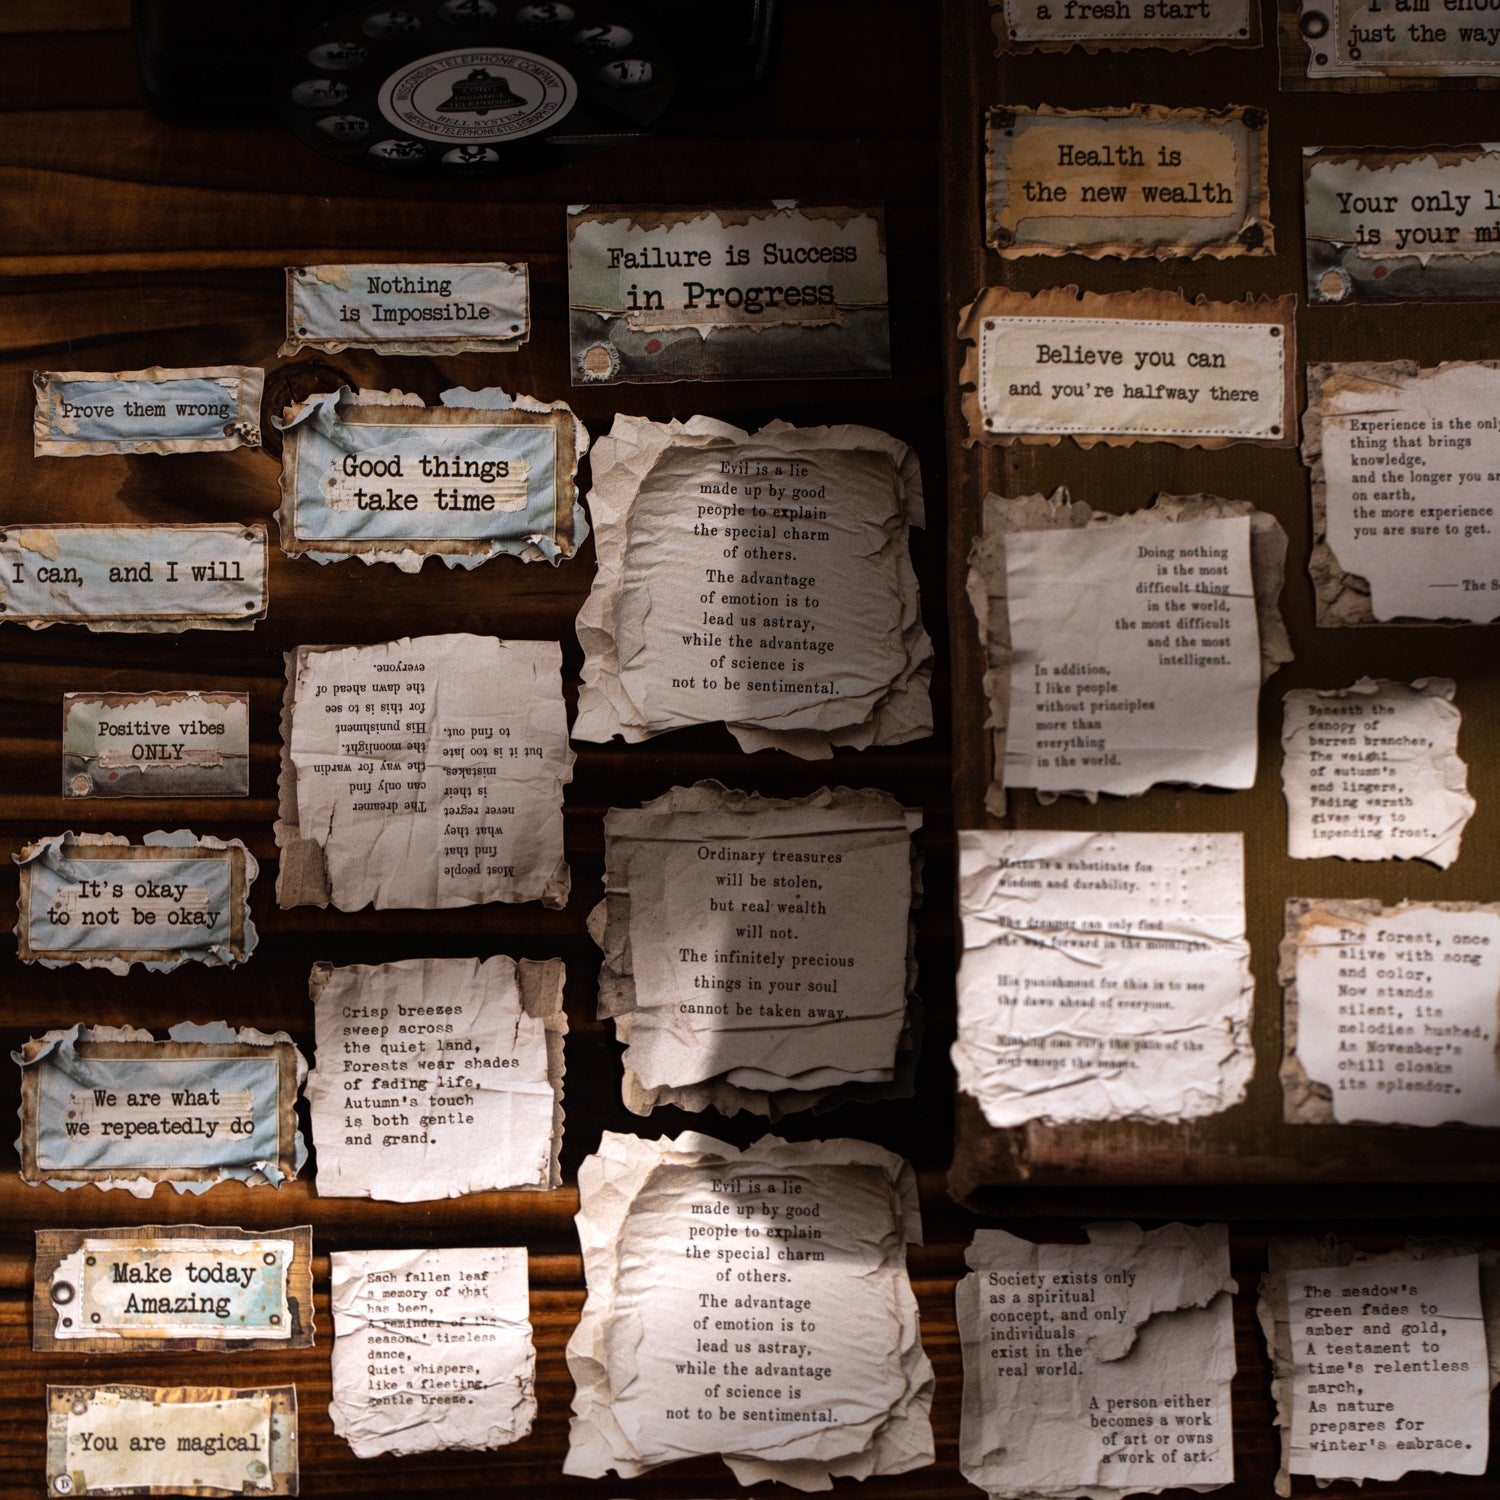 WISCONSIN TELEPHONE COMPANY
LONG
DISTANCE
TELEPHONE
BELL SYSTEM
AMERICAN TELEPHONE & TELEGRAPH CO.
Nothing
is Impossible
Failure is Success
in Progress
Prove them wrong
Good things
take time
I can, and I will
Positive vibes
ONLY
It's okay
to not be okay
We are what
we repeatedly do
Make today
Amazing
You are magical
Most people
find that
what they
never regret
is their
mistakes,
but it is too late
to find out.
The dreamer
can only find
the way for wardin
the moonlight.
His punishment
for this is to see
the dawn ahead of
everyone.
Crisp breezes
sweep across
the quiet land,
Forests wear shades
of fading life,
Autumn's touch
is both gentle
and grand.
Each fallen leaf
a memory of what
has been,
A reminder of the
seasons' timeless
dance,
Quiet whispers,
like a fleeting,
gentle breeze.
Evil is a lie
made up by good
people to explain
the special charm
of others.
The advantage
of emotion is to
lead us astray,
while the advantage
of science is
not to be sentimental.
Ordinary treasures
will be stolen,
but real wealth
will not.
The infinitely precious
things in your soul
cannot be taken away.
Evil is a lie
made up by good
people to explain
the special charm
of others.
The advantage
of emotion is to
lead us astray,
while the advantage
of science is
not to be sentimental.
a fresh start
Health is
the new wealth
Believe you can
and you're halfway there
Doing nothing
is the most
difficult thing
in the world,
the most difficult
and the most
intelligent.
In addition,
I like people
without principles
more than
everything
in the world.
is a substitute for
wisdom and durability.
The dreamer can only find
the way forward in the moonlight.
His punishment for this is to see
the dawn ahead of everyone.
can cure the pain of the
soul except the senses.
Society exists only
as a spiritual
concept, and only
individuals
exist in the
real world.
A person either
becomes a work
of art or owns
a work of art.
I am
just the way
Your only
is your
Experience is the
thing that brings
knowledge,
and the longer you
on earth,
the more experience
you are sure to get.
The
Beneath the
canopy of
barren branches,
The weight
of autumn's
end lingers,
Fading warmth
gives way to
impending frost.
The forest, once
alive with song
and color,
Now stands
silent, its
melodies hushed,
As November's
chill cloaks
its splendor.
The meadow's
green fades to
amber and gold,
A testament to
time's relentless
march,
As nature
prepares for
winter's embrace.